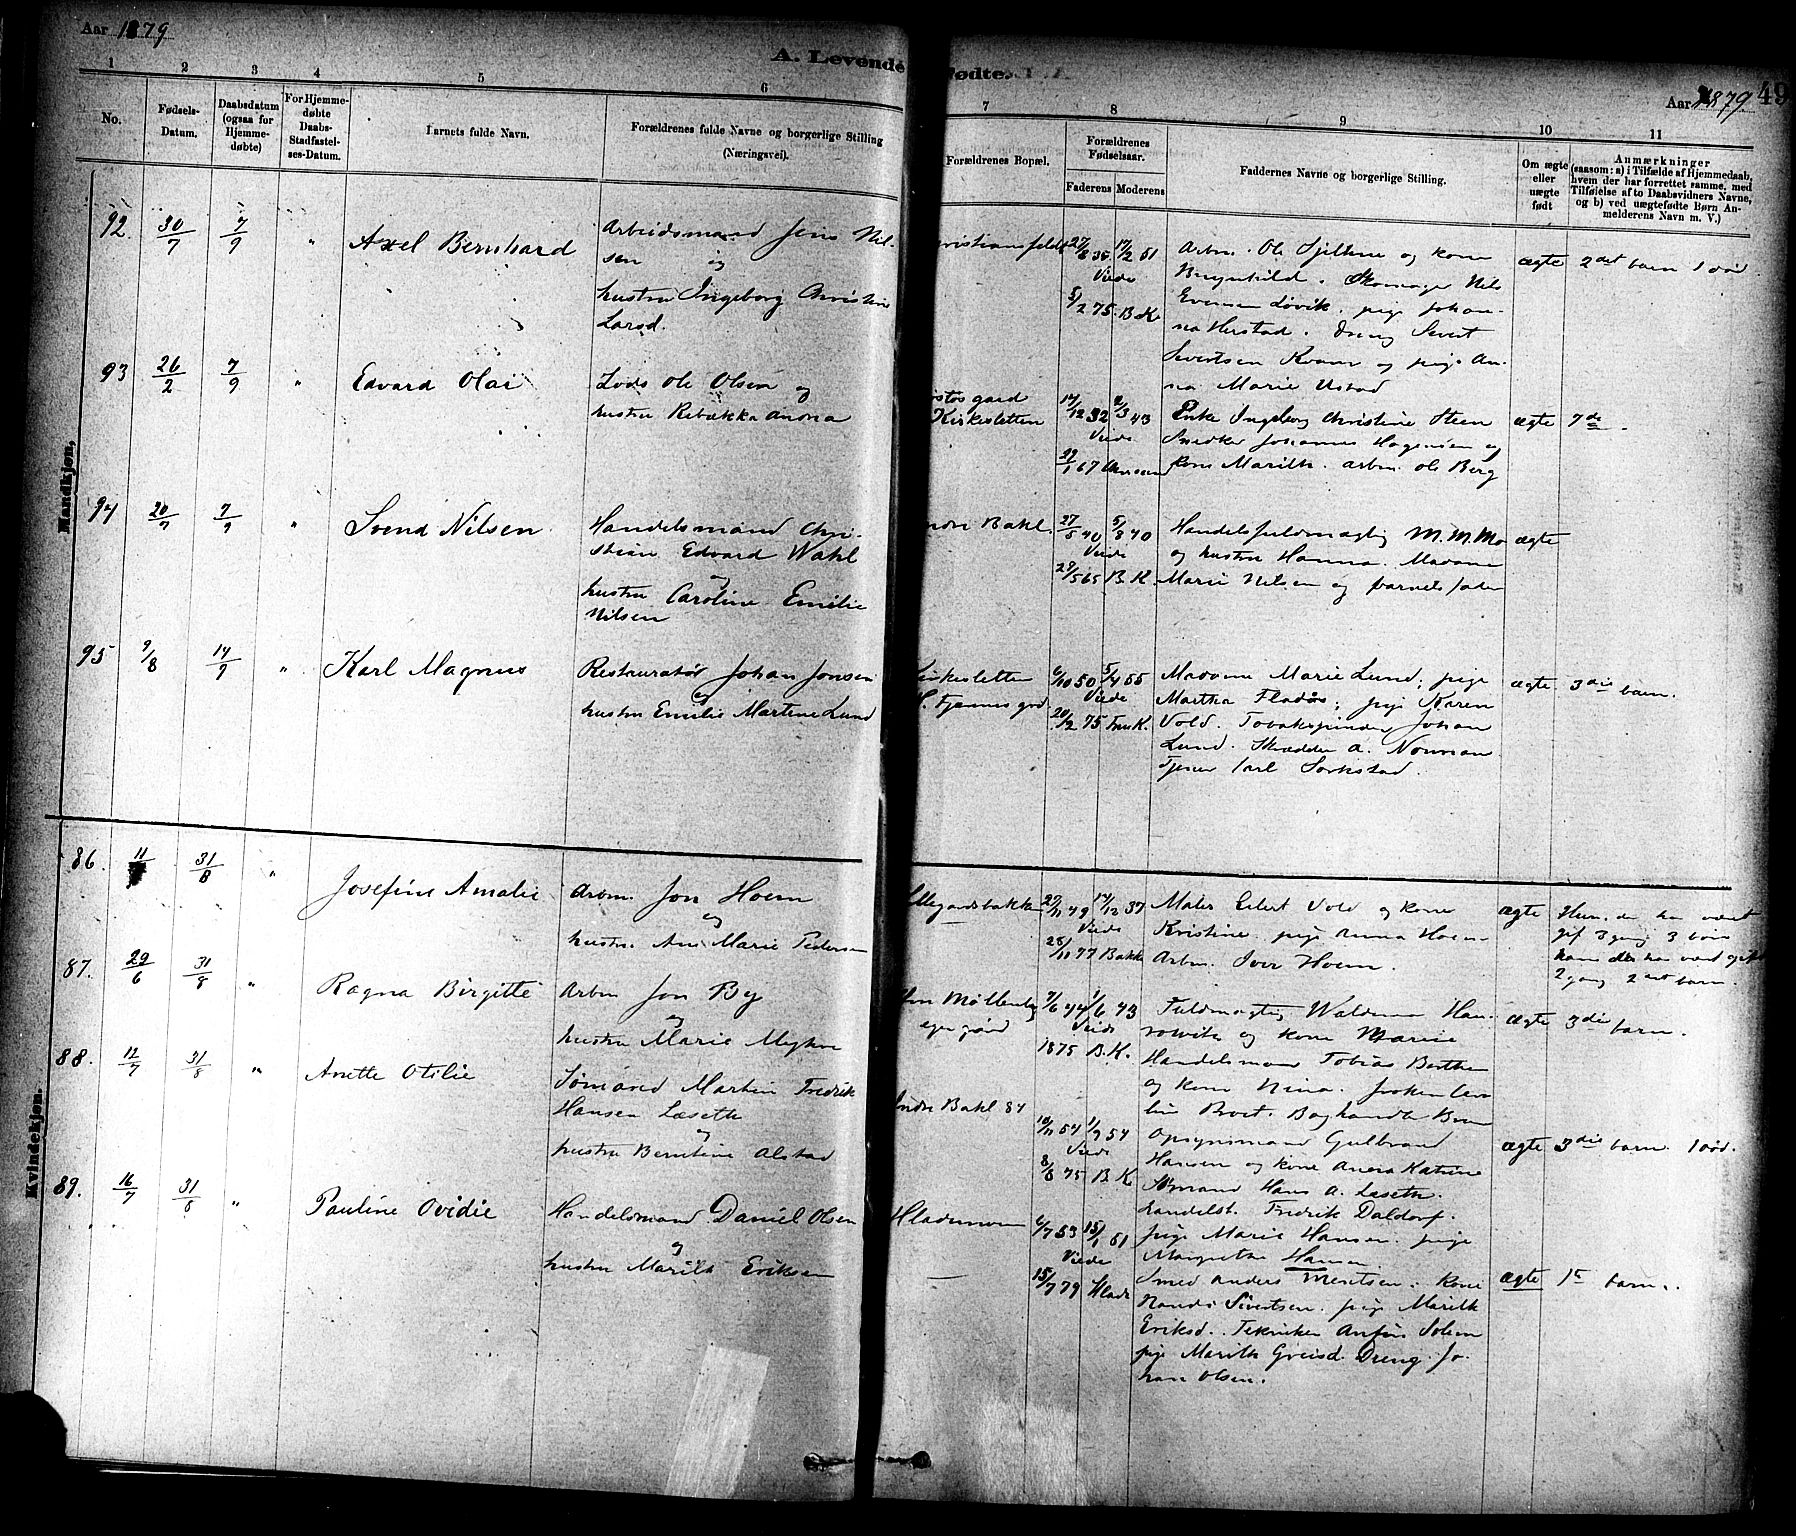 Aar 1879
A. Levende Fødte.
Aar 1879. 49
1 2 3 4 5 6 7 8 9 10 11
No.
Fødsels-
Datum.
Daabsdatum
(ogsaa for
Hjemme-
døbte)
For Hjemme-
døbte
Daabs-
Stadfæstel-
ses-Datum.
Barnets fulde Navn.
Forældrenes fulde Navne og borgerlige Stilling
(Næringsvei).
Forældrenes Bopæl.
Forældrenes
Fødselsaar.
Faderens Moderens
Faddernes Navne og borgerlige Stilling.
Om ægte
eller
uægte
født
Anmærkninger
(saasom: a) i Tilfælde af Hjemmedaab,
hvem der har forrettet samme, med
Tilføielse af to Daabsvidners Navne,
og b) ved uægtefødte Børn An-
melderens Navn m. V.)
Mandkjøn.
92. 30/7 7/9 " Axel Bernhard
Arbeidsmand Jens Nil-
sen og
hustru Ingeborg Christine
Larsd.
ristiansfeldt
27/8 35 17/2 51
Viede
5/2 75. B.K.
Arbm. Ole Sjiltne og kone
Brynhild. Skomager Nils
Evensen Løvik. pige Johan-
na Herstad. Dreng Sivert
Sivertsen Kvam og pige An-
na Marie Ustad
ægte 2det barn 1 død.
93 26/2 7/9 " Edvard Olai
Lods Ole Olsen og
hustru Rebække Anna
gaard
Kirkesletten
17/12 32 2/3 43
Viede
29/1 67
Enke Ingeborg Christine Steen
Snedker Johannes Hagensen og
kone Marith. arbm. Ole Berg
ægte 7de
94 20/7 7/9 " Svend Nilsen
Handelsmand Chri-
stian Edvard Wahl
og
hustru Caroline Emilie
Nilsen
ndre Bakl.
27/5 40 5/8 40
Viede
29/5 65 B.K.
Handelsfuldmægtig M. M. Mo
og hustru Hanna. Madame
Marie Nilsen og barnets fader
ægte
95 9/8 14/9 " Karl Magnus
Restauratør Johan Jonsen
og
hustru Emilie Martine Lund
irkesletten
H. Fjærnis grd
6/10 50 5/4 55
Viede
20/2 75 FrueK.
Madame Marie Lund; pige
Martha Fladås; pige Karen
Vold. Tobakspinder Johan
Lund. Skrædder A. Norman
Tjener Carl Sorkstad.
ægte 3die barn.
Kvindekjøn.
86. 11 31/8 " Josefine Amalie
Arbm. Jon Hoem
og
hustru Ane Marie Pedersen
llegardsbakken
27/11 49 17/12 37
Viede
28/11 77 Bakke
Maler Eilert Vold og kone
Kristine. pige Anna Hoem
Arbm. Iver Hoem.
ægte Hun, der har været
gif 3 gang 3 børn
ham der har været gift
2 gang 2det barn.
87. 29/6 31/8 " Ragna Birgitte
Arbm Jon By
og
hustru Marie
Møllenb
egen gård
7/6 44 1/6 43
Viede
1875 B.K.
Fuldmægtig Waldemar Han-
og kone Marie
Handelsmand Tobias Berthen
og kone Nina.
ægte 3die barn.
88. 12/7 31/8 " Anette Otilie
Sømand Martin Fredrik
Hansen Læseth
og
hustru Berntine Alstad
Indre Bakl 84
10/11 54 1/9 54
Viede
8/8 75 B K
Opsynsmand Gulbrand
Hansen og kone Anna Katrine
Sømand Hans A. Læseth.
Landelst. Fredrik Daldorf.
pige Marie Hansen. pige
Margrethe Hansen
ægte 3die barn. 1 død.
89. 16/7 31/8 " Pauline Ovidie
Handelsmand Daniel Olsen
og
hustru Marith Eriksen
Hlademoen
6/7 53 15/1 51
Viede
15/7 79 Hlade
Smed Anders Mentsen. kone
Randi Sivertsen. pige Marith
Eriksd. Tekniker Anfin Solem
pige Marith Greisd. Dreng Jo-
han Olsen.
ægte 1te barn.